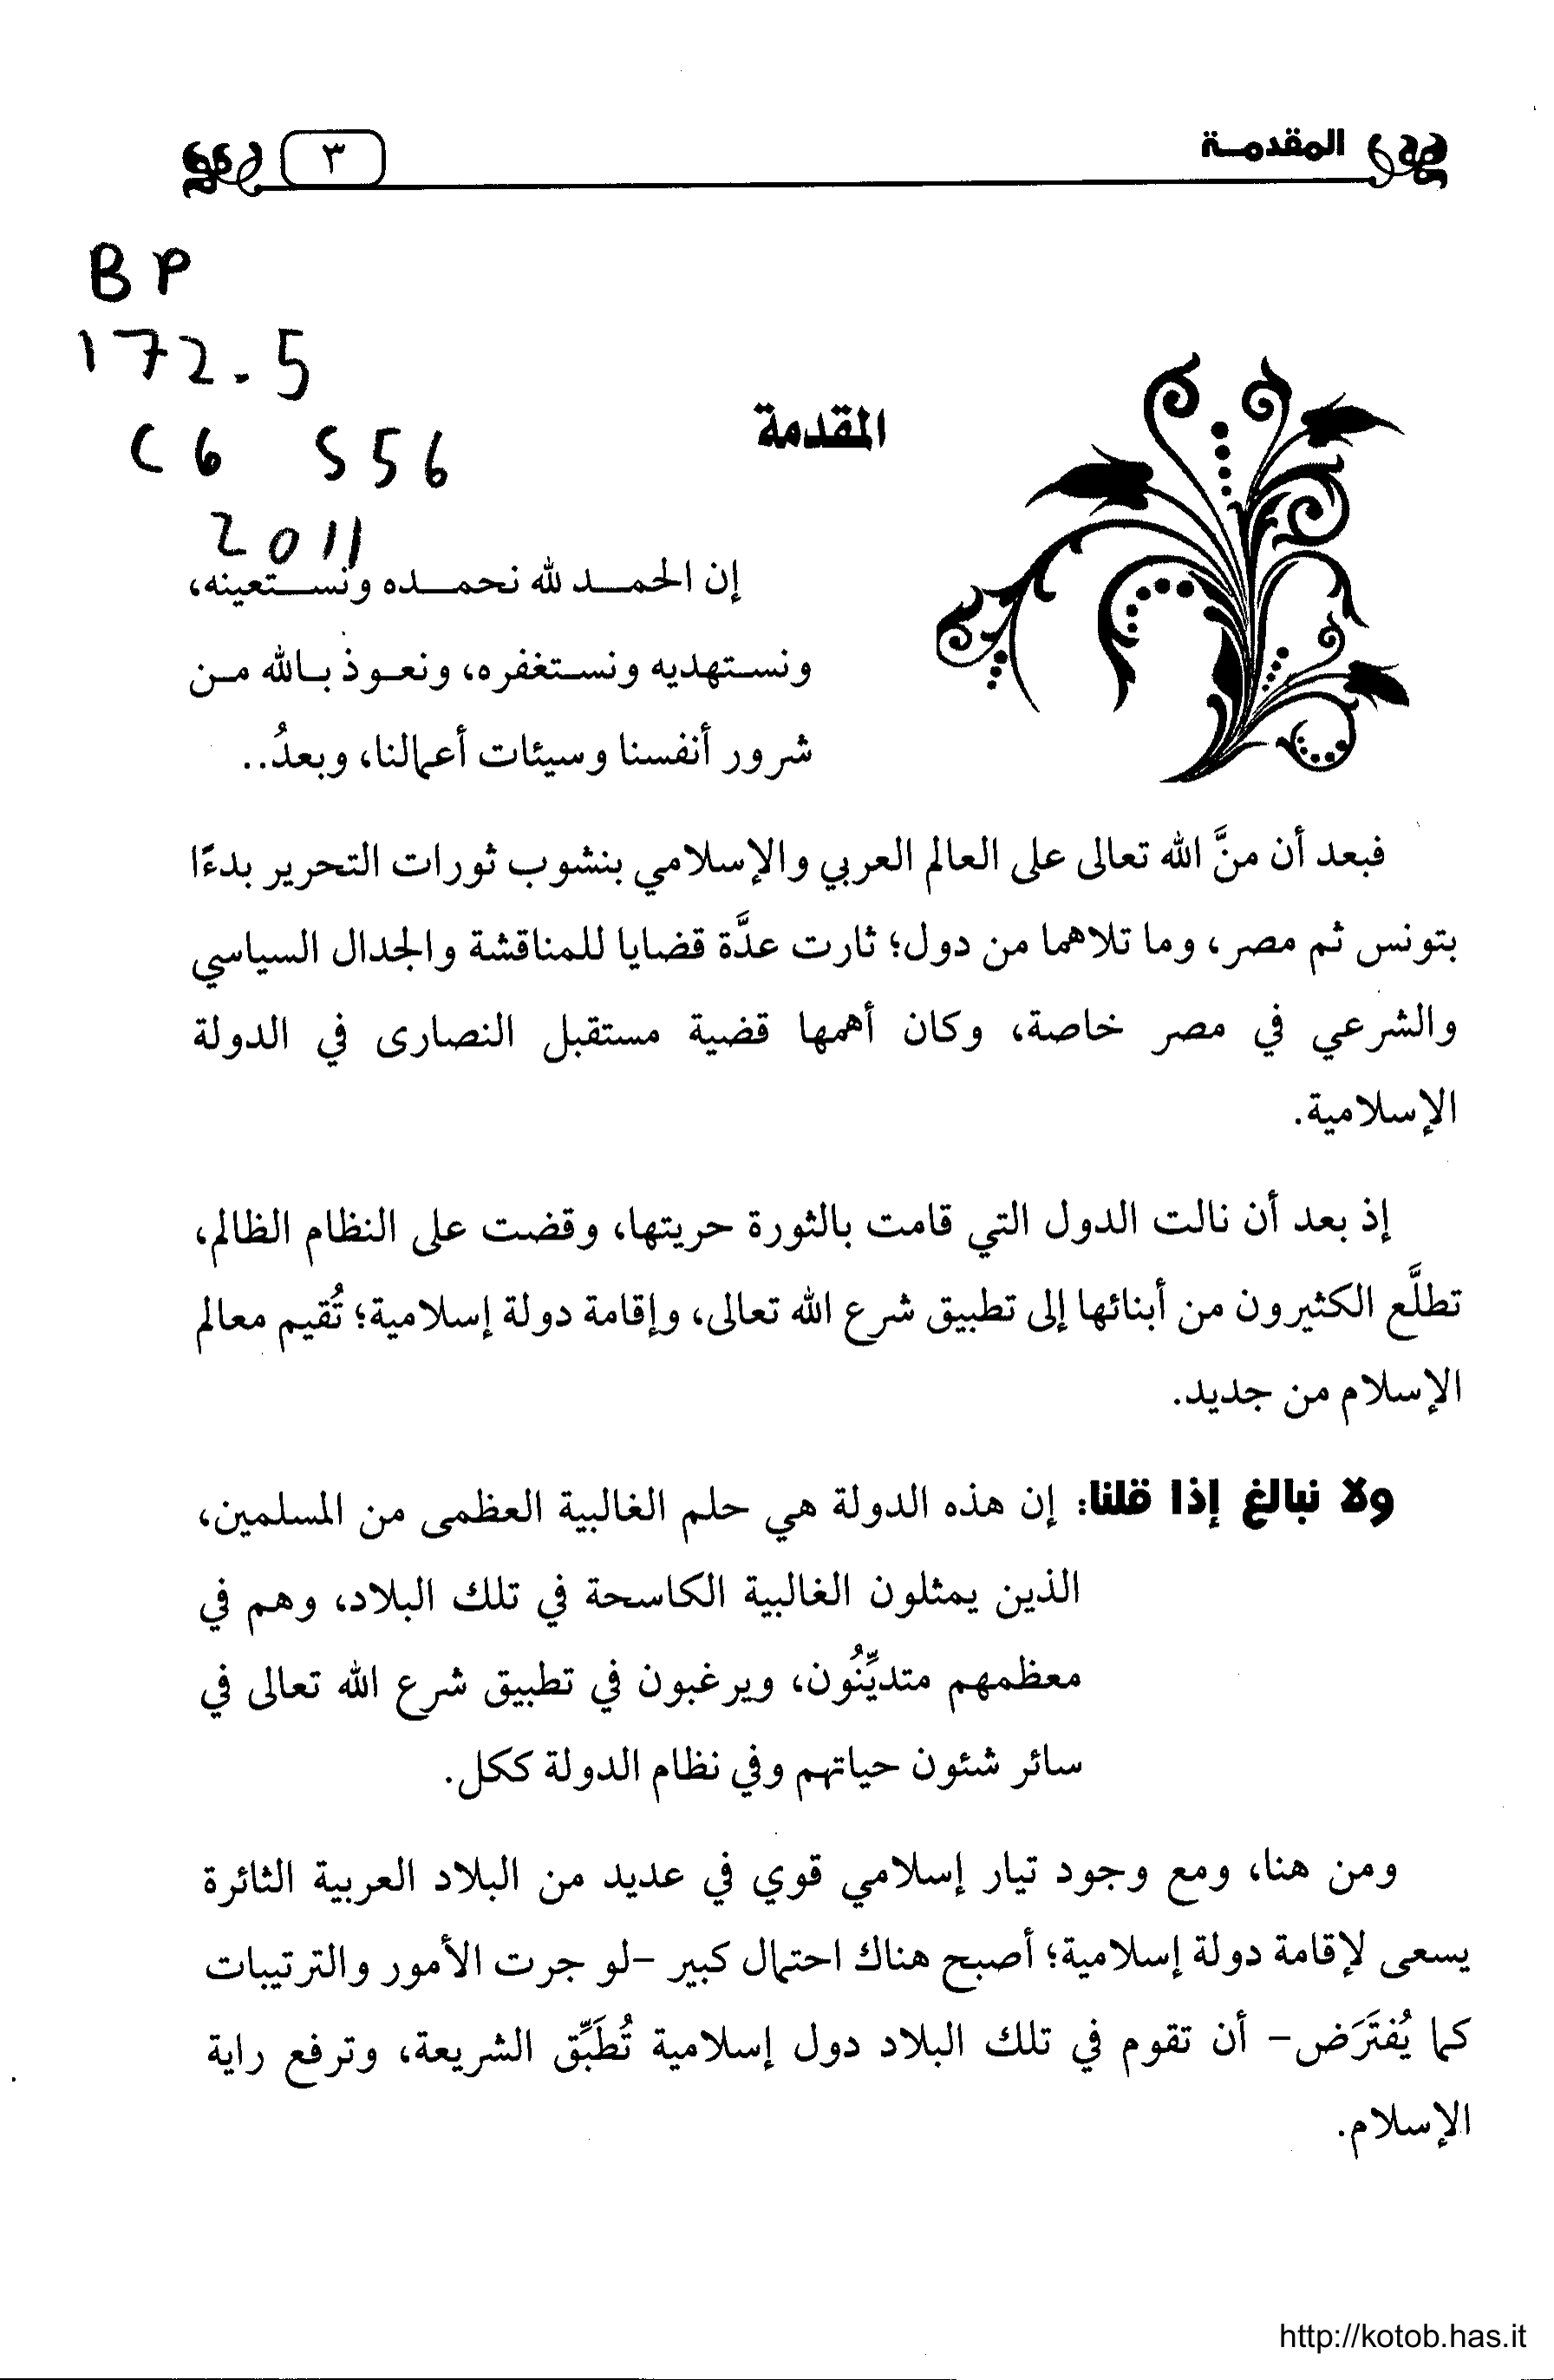 المقدمـة
٣
BP
172.5
C6 S56
2011
المقدمة
إن الحمـــد لله نحمـــده ونســـتعينه،
ونسـتهديه ونسـتغفره، ونعـوذ بـالله مـن
شرور أنفسنا وسيئات أعمالنا، وبعدُ..
فبعد أن منَّ الله تعالى على العالم العربي والإسلامي بنشوب ثورات التحرير بدءًا
بتونس ثم مصر، وما تلاهما من دول؛ ثارت عدَّة قضايا للمناقشة والجدال السياسي
والشرعي في مصر خاصة، وكان أهمها قضية مستقبل النصارى في الدولة
الإسلامية.
إذ بعد أن نالت الدول التي قامت بالثورة حريتها، وقضت على النظام الظالم،
تطلَّع الكثيرون من أبنائها إلى تطبيق شرع الله تعالى، وإقامة دولة إسلامية؛ تُقيم معالم
الإسلام من جديد.
ولا نبالغ إذا قلنا: إن هذه الدولة هي حلم الغالبية العظمى من المسلمين،
الذين يمثلون الغالبية الكاسحة في تلك البلاد، وهم في
معظمهم متديِّنُون، ويرغبون في تطبيق شرع الله تعالى في
سائر شئون حياتهم وفي نظام الدولة ككل.
ومن هنا، ومع وجود تيار إسلامي قوي في عديد من البلاد العربية الثائرة
يسعى لإقامة دولة إسلامية؛ أصبح هناك احتمال كبير -لو جرت الأمور والترتيبات
كما يُفتَرَض- أن تقوم في تلك البلاد دول إسلامية تُطَبِّق الشريعة، وترفع راية
الإسلام.
http://kotob.has.it